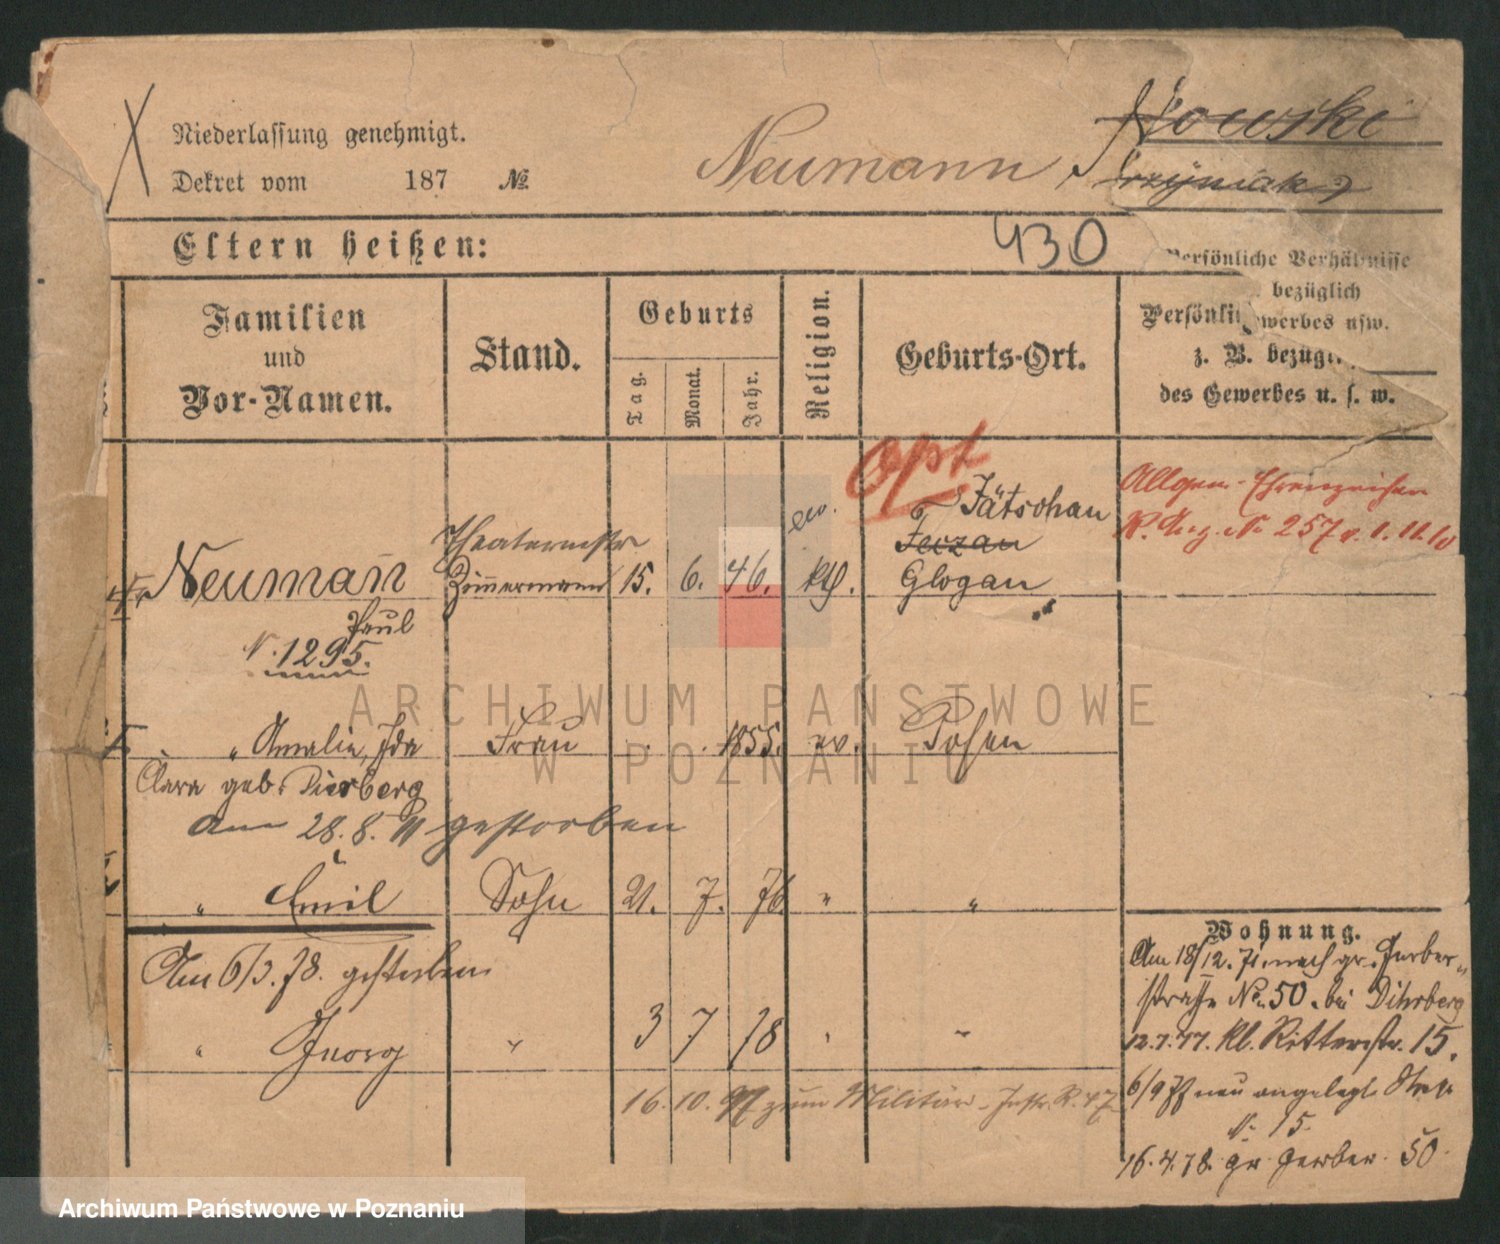 Niederlassung genehmigt.
Dekret vom 187 №
Neumann
Eltern heißen:
430
Familien
und
Vor-Namen.
Stand.
Geburts
Tag.
Monat.
Jahr.
Religion.
Geburts-Ort.
Persönliche Verhältnisse
bezüglich
Gewerbes usw.
Persönli
z. B. bezügl
des Gewerbes u. s. w.
Opt
Jätschau
Allgem. Ehrenzeichen
257 v. 1.11.10
ev.
Neumann
Zimmermann 15. 6. 46. kth. Glogau
Paul
N. 1295.
" Amalie, Ida Frau 1855. ev. Posen
Clara geb.
am 28. 8. 11 gestorben
" Emil Sohn 21. 7. 76. " "
Am 6/3. 78. gestorben
" Georg " 3 7 78 " "
16. 10. 97 zum Militär-Inftr. R. 47
Wohnung.
Am 18/12. 71 nach gr. Gerber-
straße No. 50. bei Dihrberg
12.7.77. kl. Ritterstr. 15.
6/9 77 neu angelegte Str.
N. 15.
16.4.78. gr. Gerber. 50.
ARCHIWUM PAŃSTWOWE
W POZNANIU
Archiwum Państwowe w Poznaniu